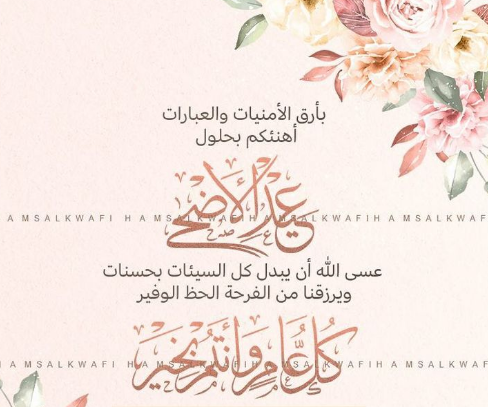 بأرق الأمنيات والعبارات
أهنئكم بحلول
عيد الأضحى
HAMSALKWAFI HAMSALKWAFI HAMSALKWAFI HAMSALKWAF
عسى الله أن يبدل كل السيئات بحسنات
ويرزقنا من الفرحة الحظ الوفير
كل عام وأنتم بخير
HAMSALKWAFI HAMSALKWAFI HAMSALKWAFI HAMSALKWAF